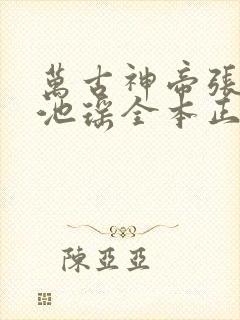 萬古神帝張
池瑤全本正
陳亞亞